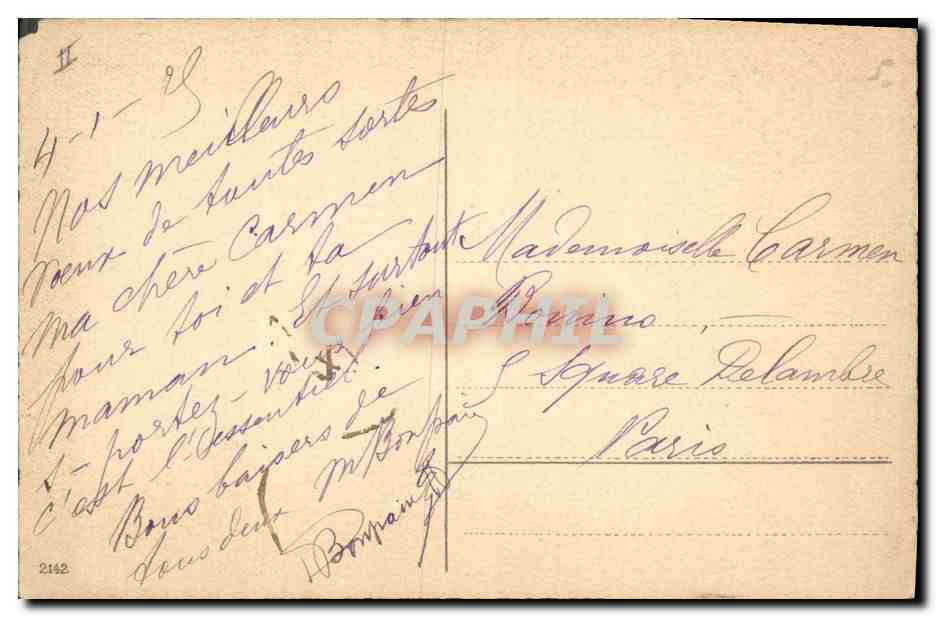 II
4-1-25
Nos meilleurs
voeux de toutes sortes
ma chère Carmen
pour toi et ta
maman. Et surtout
portez-vous bien
c'est l'essentiel.
Bons baisers de
tous deux
M Bonpain
Bonpain
2142
Mademoiselle Carmen
5 Square Delambre
Paris
CPAPHIL